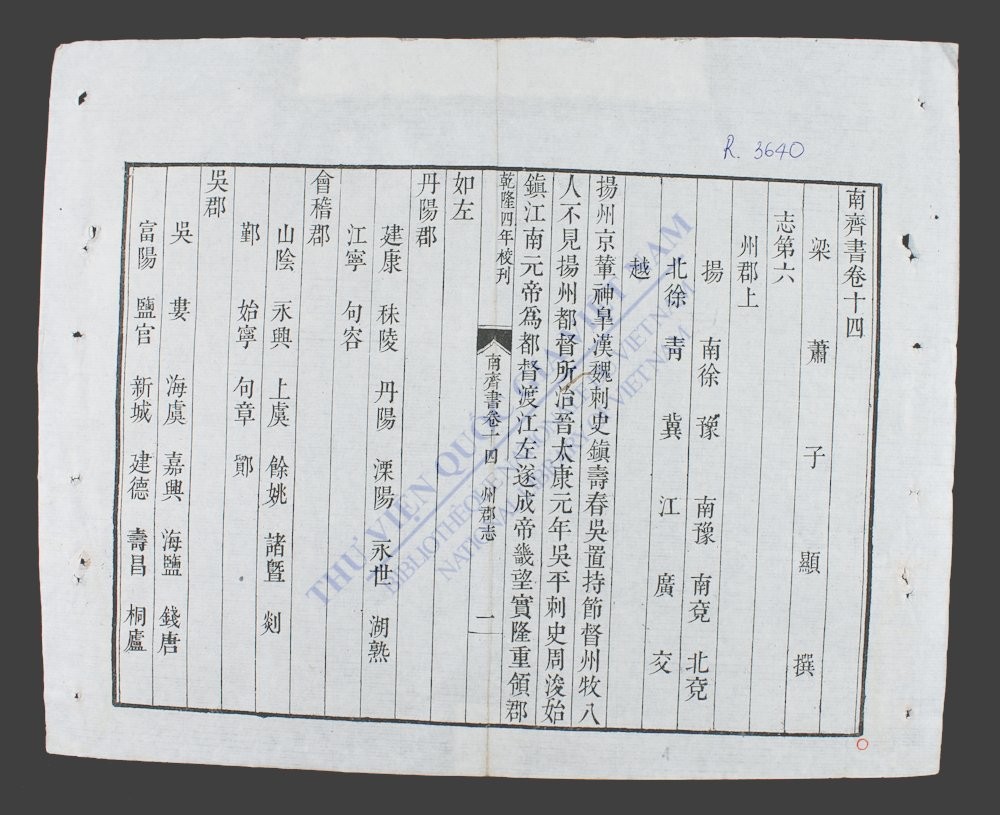 R. 3640
南齊書卷十四
梁 蕭 子 顯 撰
志第六
州郡上
揚 南徐 豫 南豫 南兗 北兗
北徐 靑 冀 江 廣 交
越
揚州京輦神臯漢魏刺史鎭壽春吳置持節督州牧八
人不見揚州都督所治晉太康元年吳平刺史周浚始
鎭江南元帝爲都督渡江左遂成帝畿望實隆重領郡
乾隆四年校刊
南齊書卷十四 州郡志 一
如左
丹陽郡
建康 秣陵 丹陽 溧陽 永世 湖熟
江寧 句容
會稽郡
山陰 永興 上虞 餘姚 諸曁 剡
鄞 始寧 句章 鄮
吳郡
吳 婁 海虞 嘉興 海鹽 錢唐
富陽 鹽官 新城 建德 壽昌 桐廬
THƯ VIỆN QUỐC GIA VIỆT NAM
BIBLIOTHÈQUE NATIONALE DU VIETNAM
NATIONAL LIBRARY OF VIETNAM